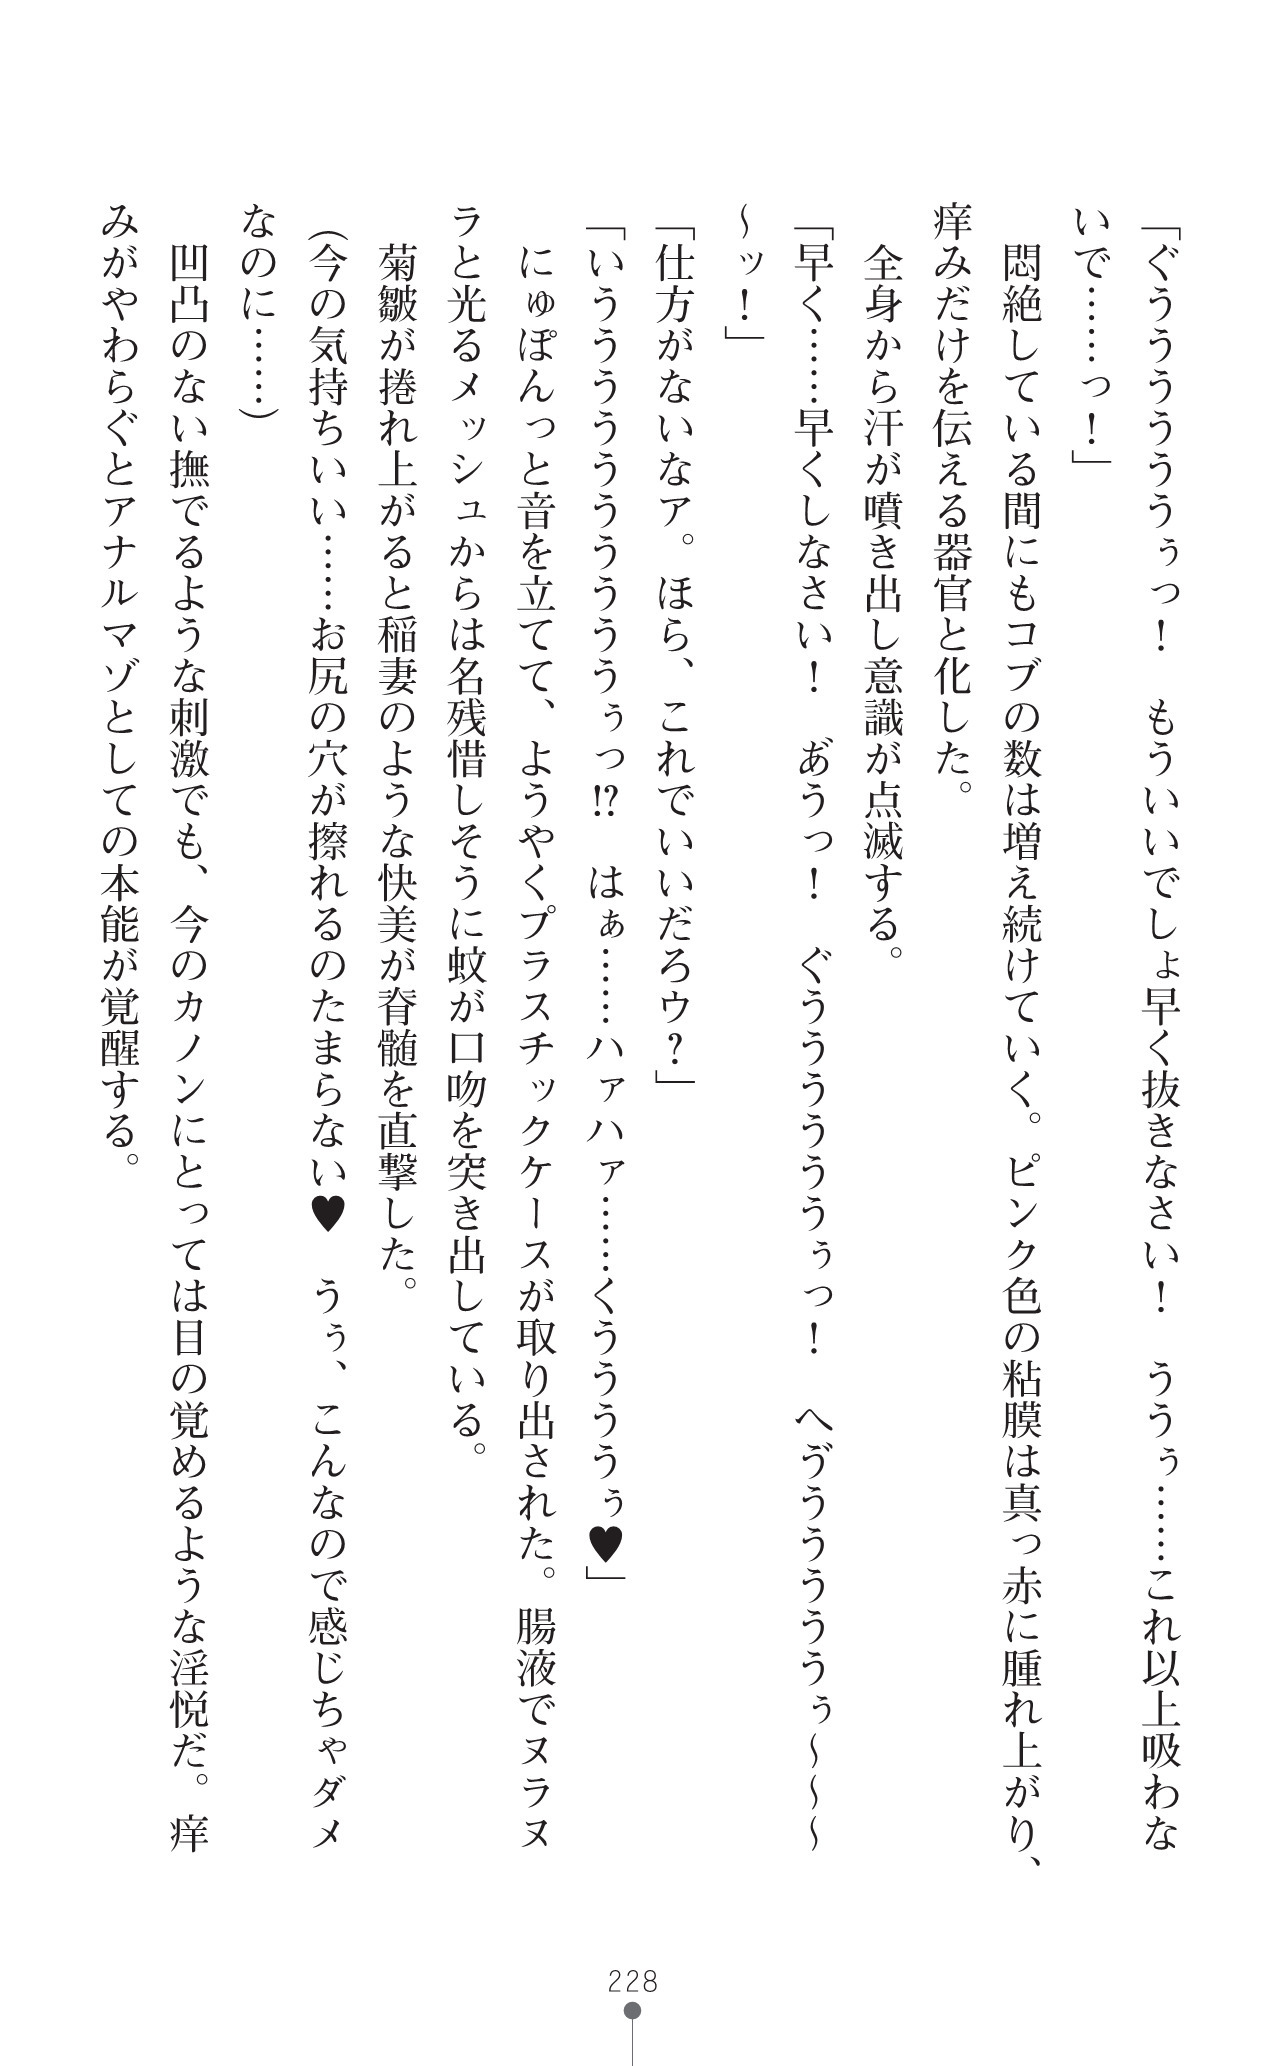 「ぐううううううぅっ！　もういいでしょ早く抜きなさい！　ううぅ……これ以上吸わな
いで……っ！」
　悶絶している間にもコブの数は増え続けていく。ピンク色の粘膜は真っ赤に腫れ上がり、
痒みだけを伝える器官と化した。
　全身から汗が噴き出し意識が点滅する。
「早く……早くしなさい！　あ゛うっ！　ぐうううううううぅっ！　へゔうううううぅ～～～
～ッ！」
「仕方がないなァ。ほら、これでいいだろウ？」
「いうううううううううううぅっ!?　はぁ……ハァハァ……くうううううぅ♥」
　にゅぽんっと音を立てて、ようやくプラスチックケースが取り出された。腸液でヌラヌ
ラと光るメッシュからは名残惜しそうに蚊が口吻を突き出している。
　菊皺が捲れ上がると稲妻のような快美が脊髄を直撃した。
（今の気持ちいい……お尻の穴が擦れるのたまらない♥　うぅ、こんなので感じちゃダメ
なのに……）
　凹凸のない撫でるような刺激でも、今のカノンにとっては目の覚めるような淫悦だ。痒
みがやわらぐとアナルマゾとしての本能が覚醒する。
228